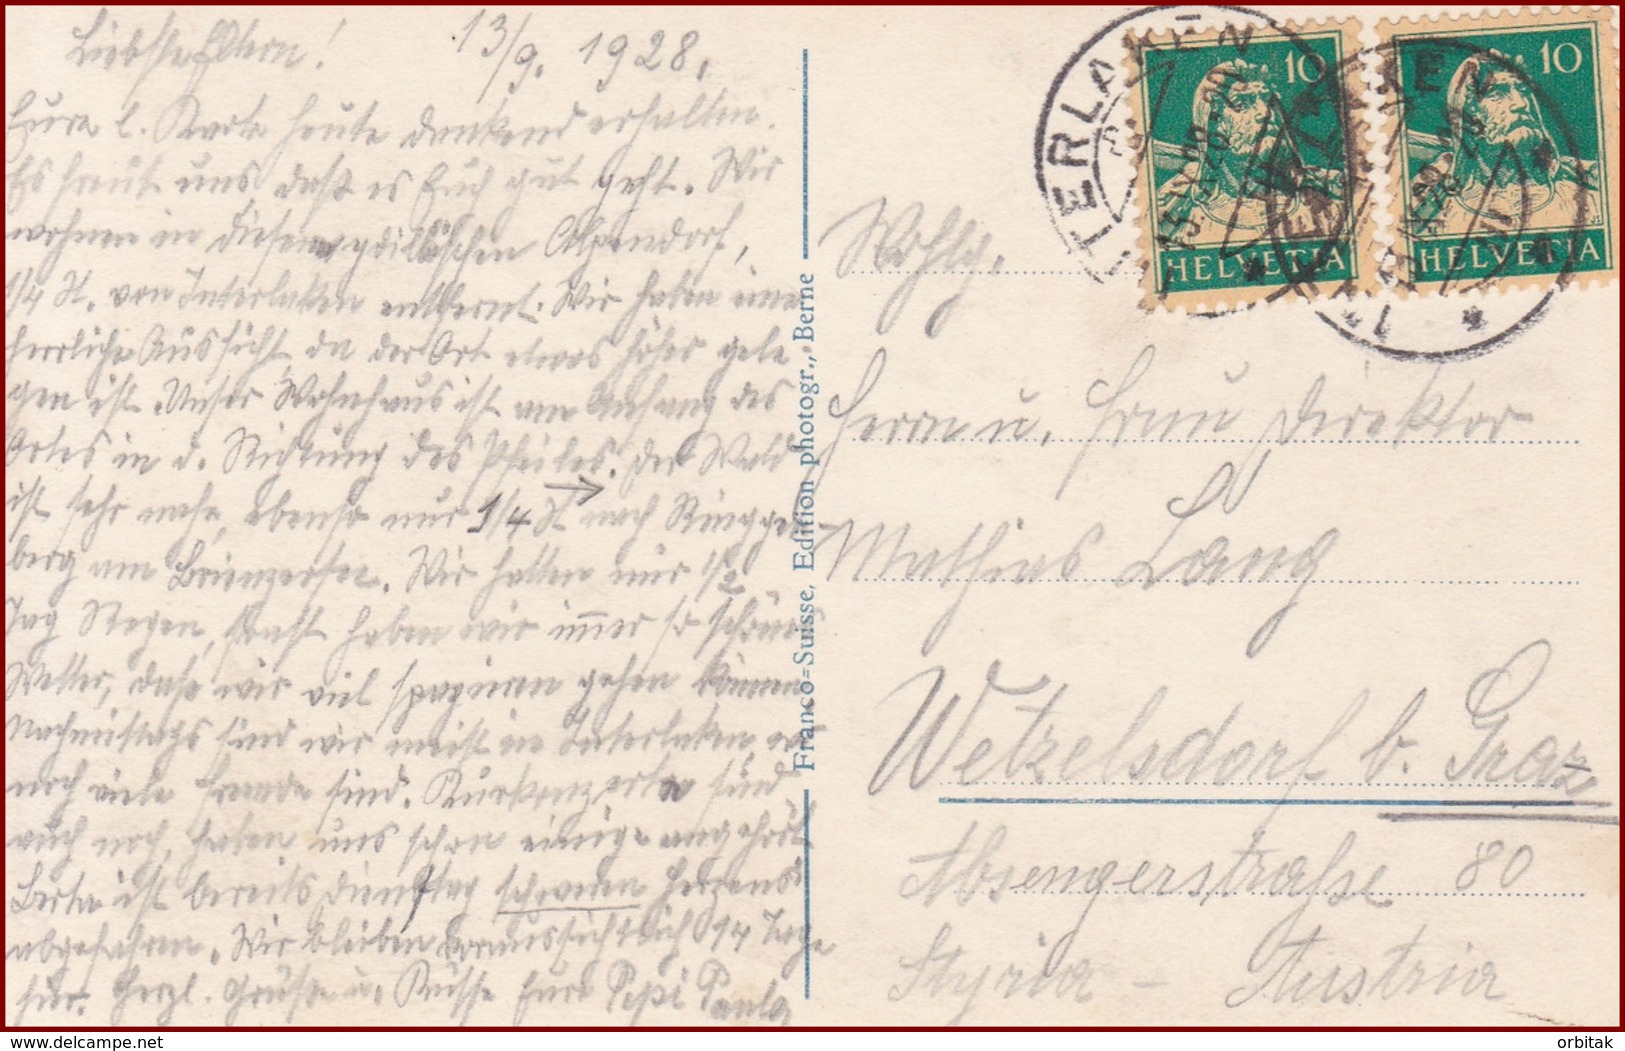 13/9. 1928.
Liebste Eltern!
Eure l. Karte heute dankend erhalten.
Es freut uns, daß es Euch gut geht. Wir
wohnen in diesem idyllischen Alpendorf,
1/4 St. von Interlaken entfernt. Wir haben eine
herrliche Aussicht, da der Ort etwas höher gele-
gen ist. Unser Wohnhaus ist am Anfang des
Ortes in d. Richtung des Pfeiles. Der Wald
ist sehr nahe, ebenso nur 1/4 St nach Ringgen
berg am Brienzersee. Wir hatten nur 1/2
Tag Regen, sonst haben wir immer so schönes
Wetter, daß wir viel spazieren gehen können.
Nachmittags sind wir meist in Interlaken, wo
noch viele Fremde sind. Kurkonzerte sind
auch noch, haben uns schon einige angehört.
Berta ist bereits Dienstag schweren Herzens
abgefahren. Wir bleiben voraussichtlich 14 Tage
hier. Herzl. Grüße u. Küsse Eure Pepi Paula
Franco=Suisse, Edition photogr., Berne
INTERLAKEN
10
HELVETIA
10
HELVETIA
Wohlg.
Herrn u. Frau Direktor
Mathias Lang
Wetzelsdorf b. Graz
Absengerstraße 80
Styria - Austria
delcampe.net
orbitak